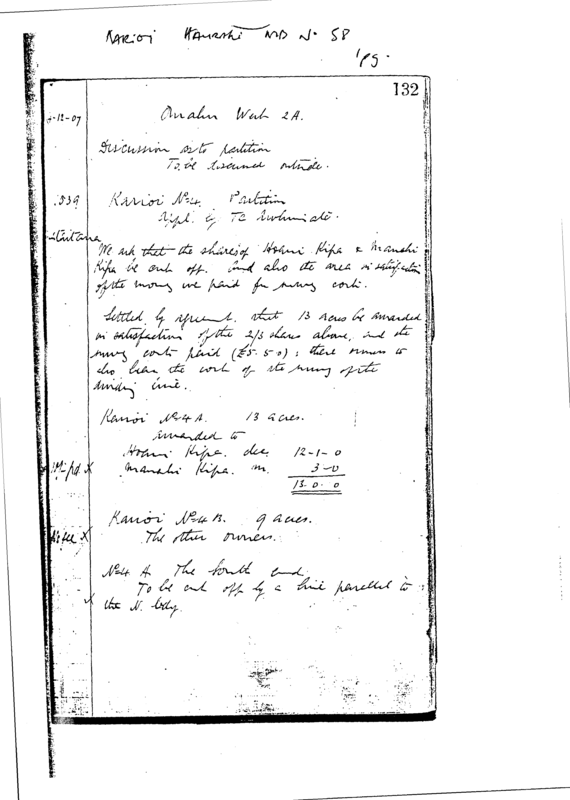 KARIOI HAURAKI MB No 58
1 pg.
132
-12-07
2A.
Discussion as to partition
To be discussed outside.
539
Karioi No 4. Partition
Appl. by Te
We ask that the shares of Hoani Kipa & Manahi
Kipa be cut off. And also the area in satisfaction
of the money we paid for survey costs.
Settled by agreement that 13 acres be awarded
in satisfaction of the 2/3 shares above, and the
survey costs paid (£5.5.0): these owners to
also bear the cost of the survey of the
dividing line.
Karioi No 4 A. 13 acres.
awarded to
Hoani Kipa. dec. 12-1-0
Manahi Kipa. m. 3-0
13. 0. 0
Karioi No 4 B. 9 acres.
The other owners.
No 4 A The South end.
To be cut off by a line parallel to
x the N. bdy.